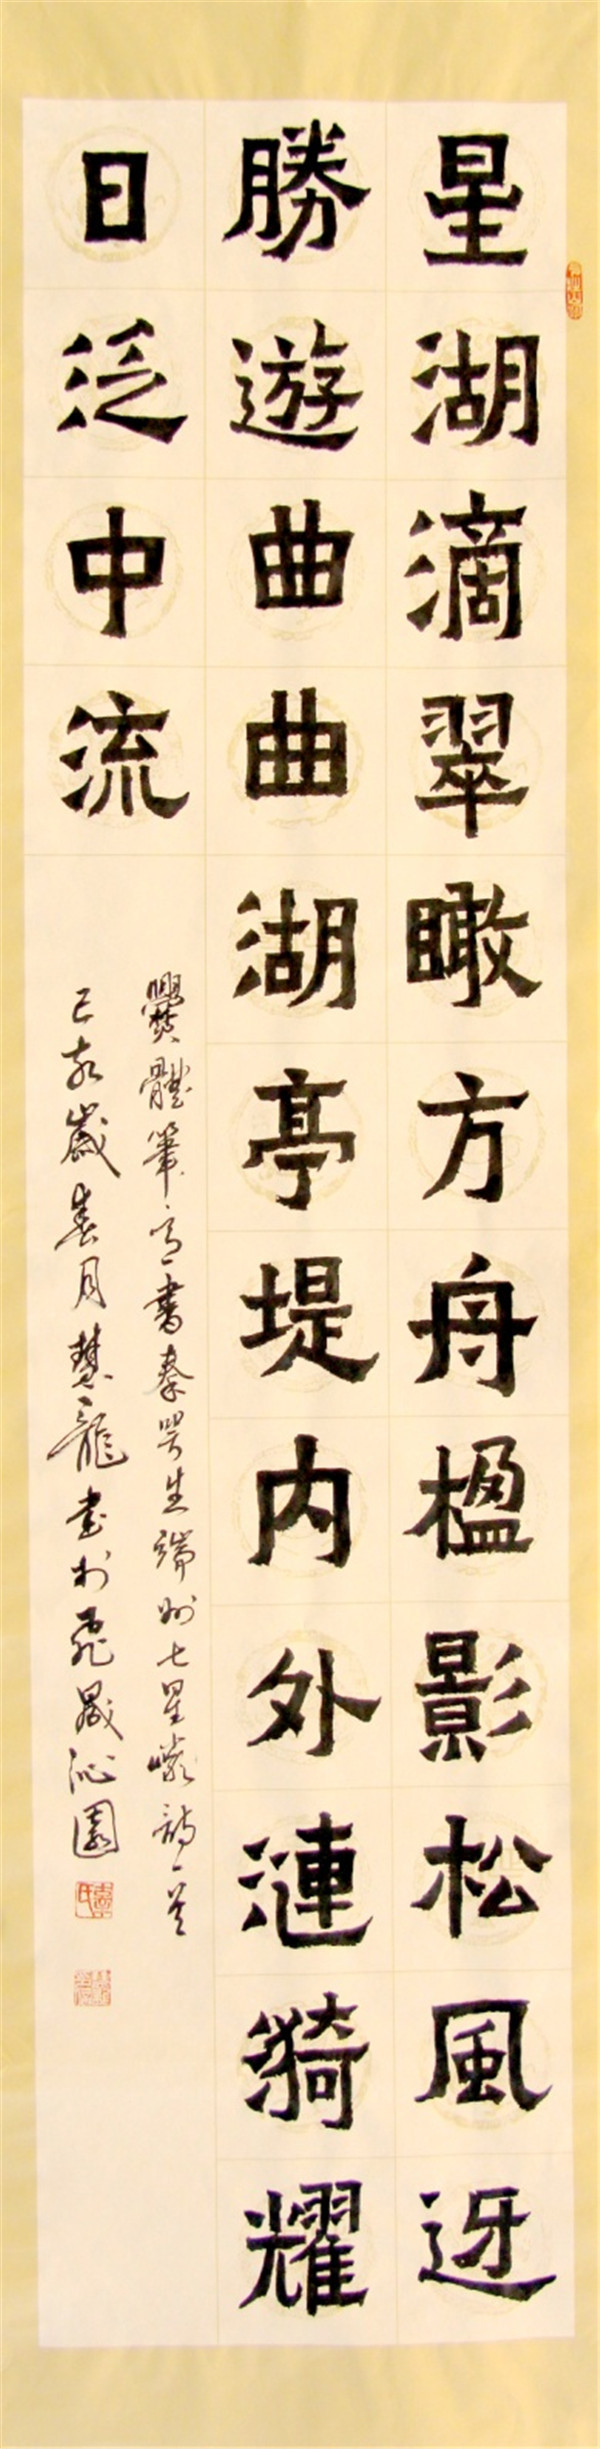 星湖滴翠瞰方舟楹影松風迓
勝遊曲曲湖亭堤内外漣漪耀
日泛中流
爨體筆意書秦咢生端州七星巖詩一首
己亥歲春月慧龍書於飛晟沁園